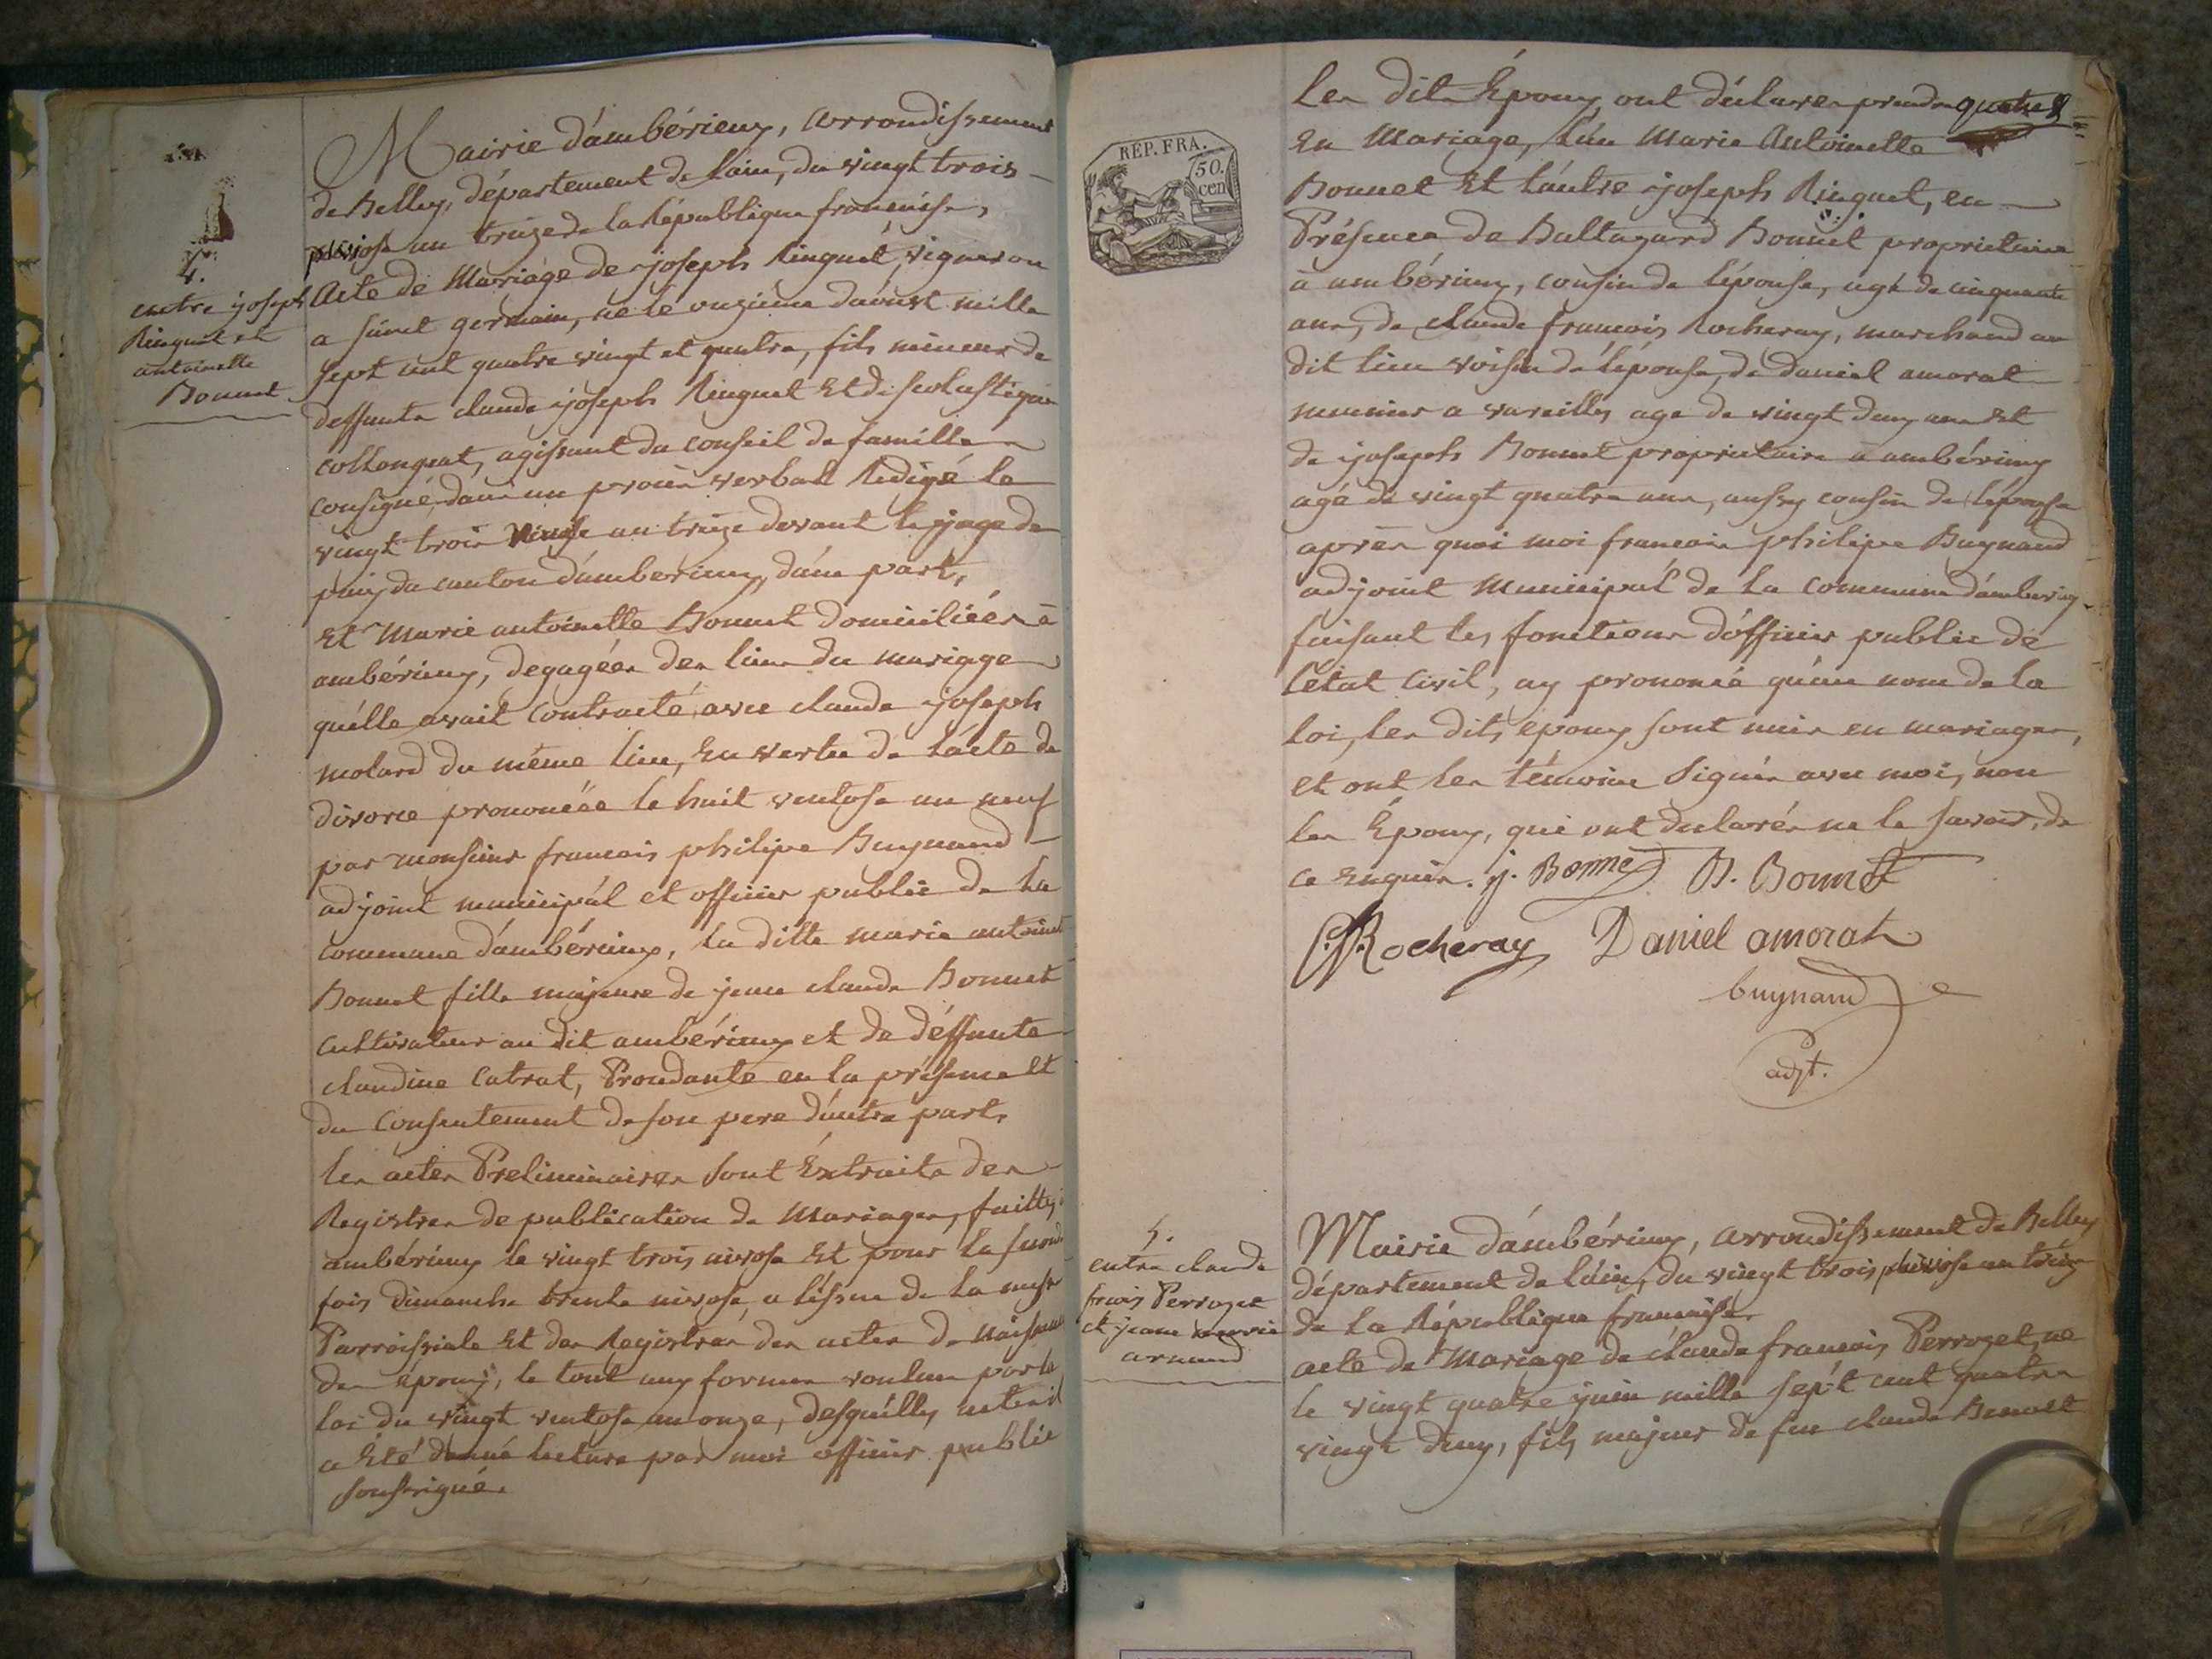 4.
entre joseph
Ringuet et
antoinette
Bonnet
Mairie d'ambérieux, arrondissement
de Belley, département de l'ain, du vingt trois
pluviose an treize de la République francaise,
Acte de Mariage de joseph Ringuet, vigneron
a saint germain, né le onzieme d'aoust mille
sept cent quatre vingt et quatre, fils mineur de
deffunts claude joseph Ringuet Et de scolastique
collonguat, agissant du conseil de famille
consigné dans un procès verbal Redigé le
vingt trois nivose an treize devant le juge de
paix du canton d'amberieux, d'une part,
Et Marie antoinette Bonnet domiciliée a
ambérieux, degagée des liens du mariage
qu'elle avait contracté avec claude joseph
molard du même lieu, En vertu de l'acte de
divorce prononcée le huit ventose an neuf
par monsieur francois philipe Buynand
adjoint municipal et officier public de la
commune d'ambérieux, la ditte marie antoinet
Bonnet fille majeure de jean claude Bonnet
cultivateur au dit ambérieux et de déffunte
claudine Catrat, Procedante en la présence Et
du consentement de son pere d'autre part,
les actes Preliminaires sont Extraits des
Registres de publication de Mariages, faittes
ambérieux le vingt trois nivose Et pour la seconde
fois Dimanche trente nivose, a l'issue de la messe
Parroissiale Et des Registres des actes de Naissance
des époux, le tout aux formes voulues par la
loi du vingt ventose an onze, desquelles actes il
a Eté donné lecture par moi officier public
soussigné.
REP. FRA.
50.
cen
quatre
les dits Époux ont déclarer prendre
En Mariage, l'un Marie Antoinette
Bonnet Et l'autre joseph Ringuet, en
Présence de Baltazard Bonnet proprietaire
à ambérieux, cousin de l'épouse, agé de cinquante
ans, de claude françois Rocheray, marchand au
dit lieu voisin de l'épouse, de daniel amorat
meunier a vareilles age de vingt deux ans Et
de joseph Bonnet proprietaire a ambérieux
agé de vingt quatre ans, aussy cousin de l'épouse
après quoi moi francois philipe Buynand
adjoint Municipal de la commune d'amberieux
faisant les fonctions d'officier public de
l'état Civil, ay prononcé qu'au nom de la
loi, les dits epoux sont unis en mariage,
et ont les témoins Signés avec moi, non
les Époux, qui ont declarés ne le savoir, de
ce Enquis. j. Bonnet B. Bonnet
C. f. Rocheray Daniel amorat
buynand
adjt.
5.
entre claude
frcois Perrozet
et jeanne marie
arnaud
Mairie d'ambérieux, arrondissement de Belley
département de l'ain, du vingt trois pluviose an treize
de la République francaise.
acte de Mariage de claude francois Perrozet, né
le vingt quatre juin mille sept cent quatre
vingt deux, fils majeur de feu claude Benoit